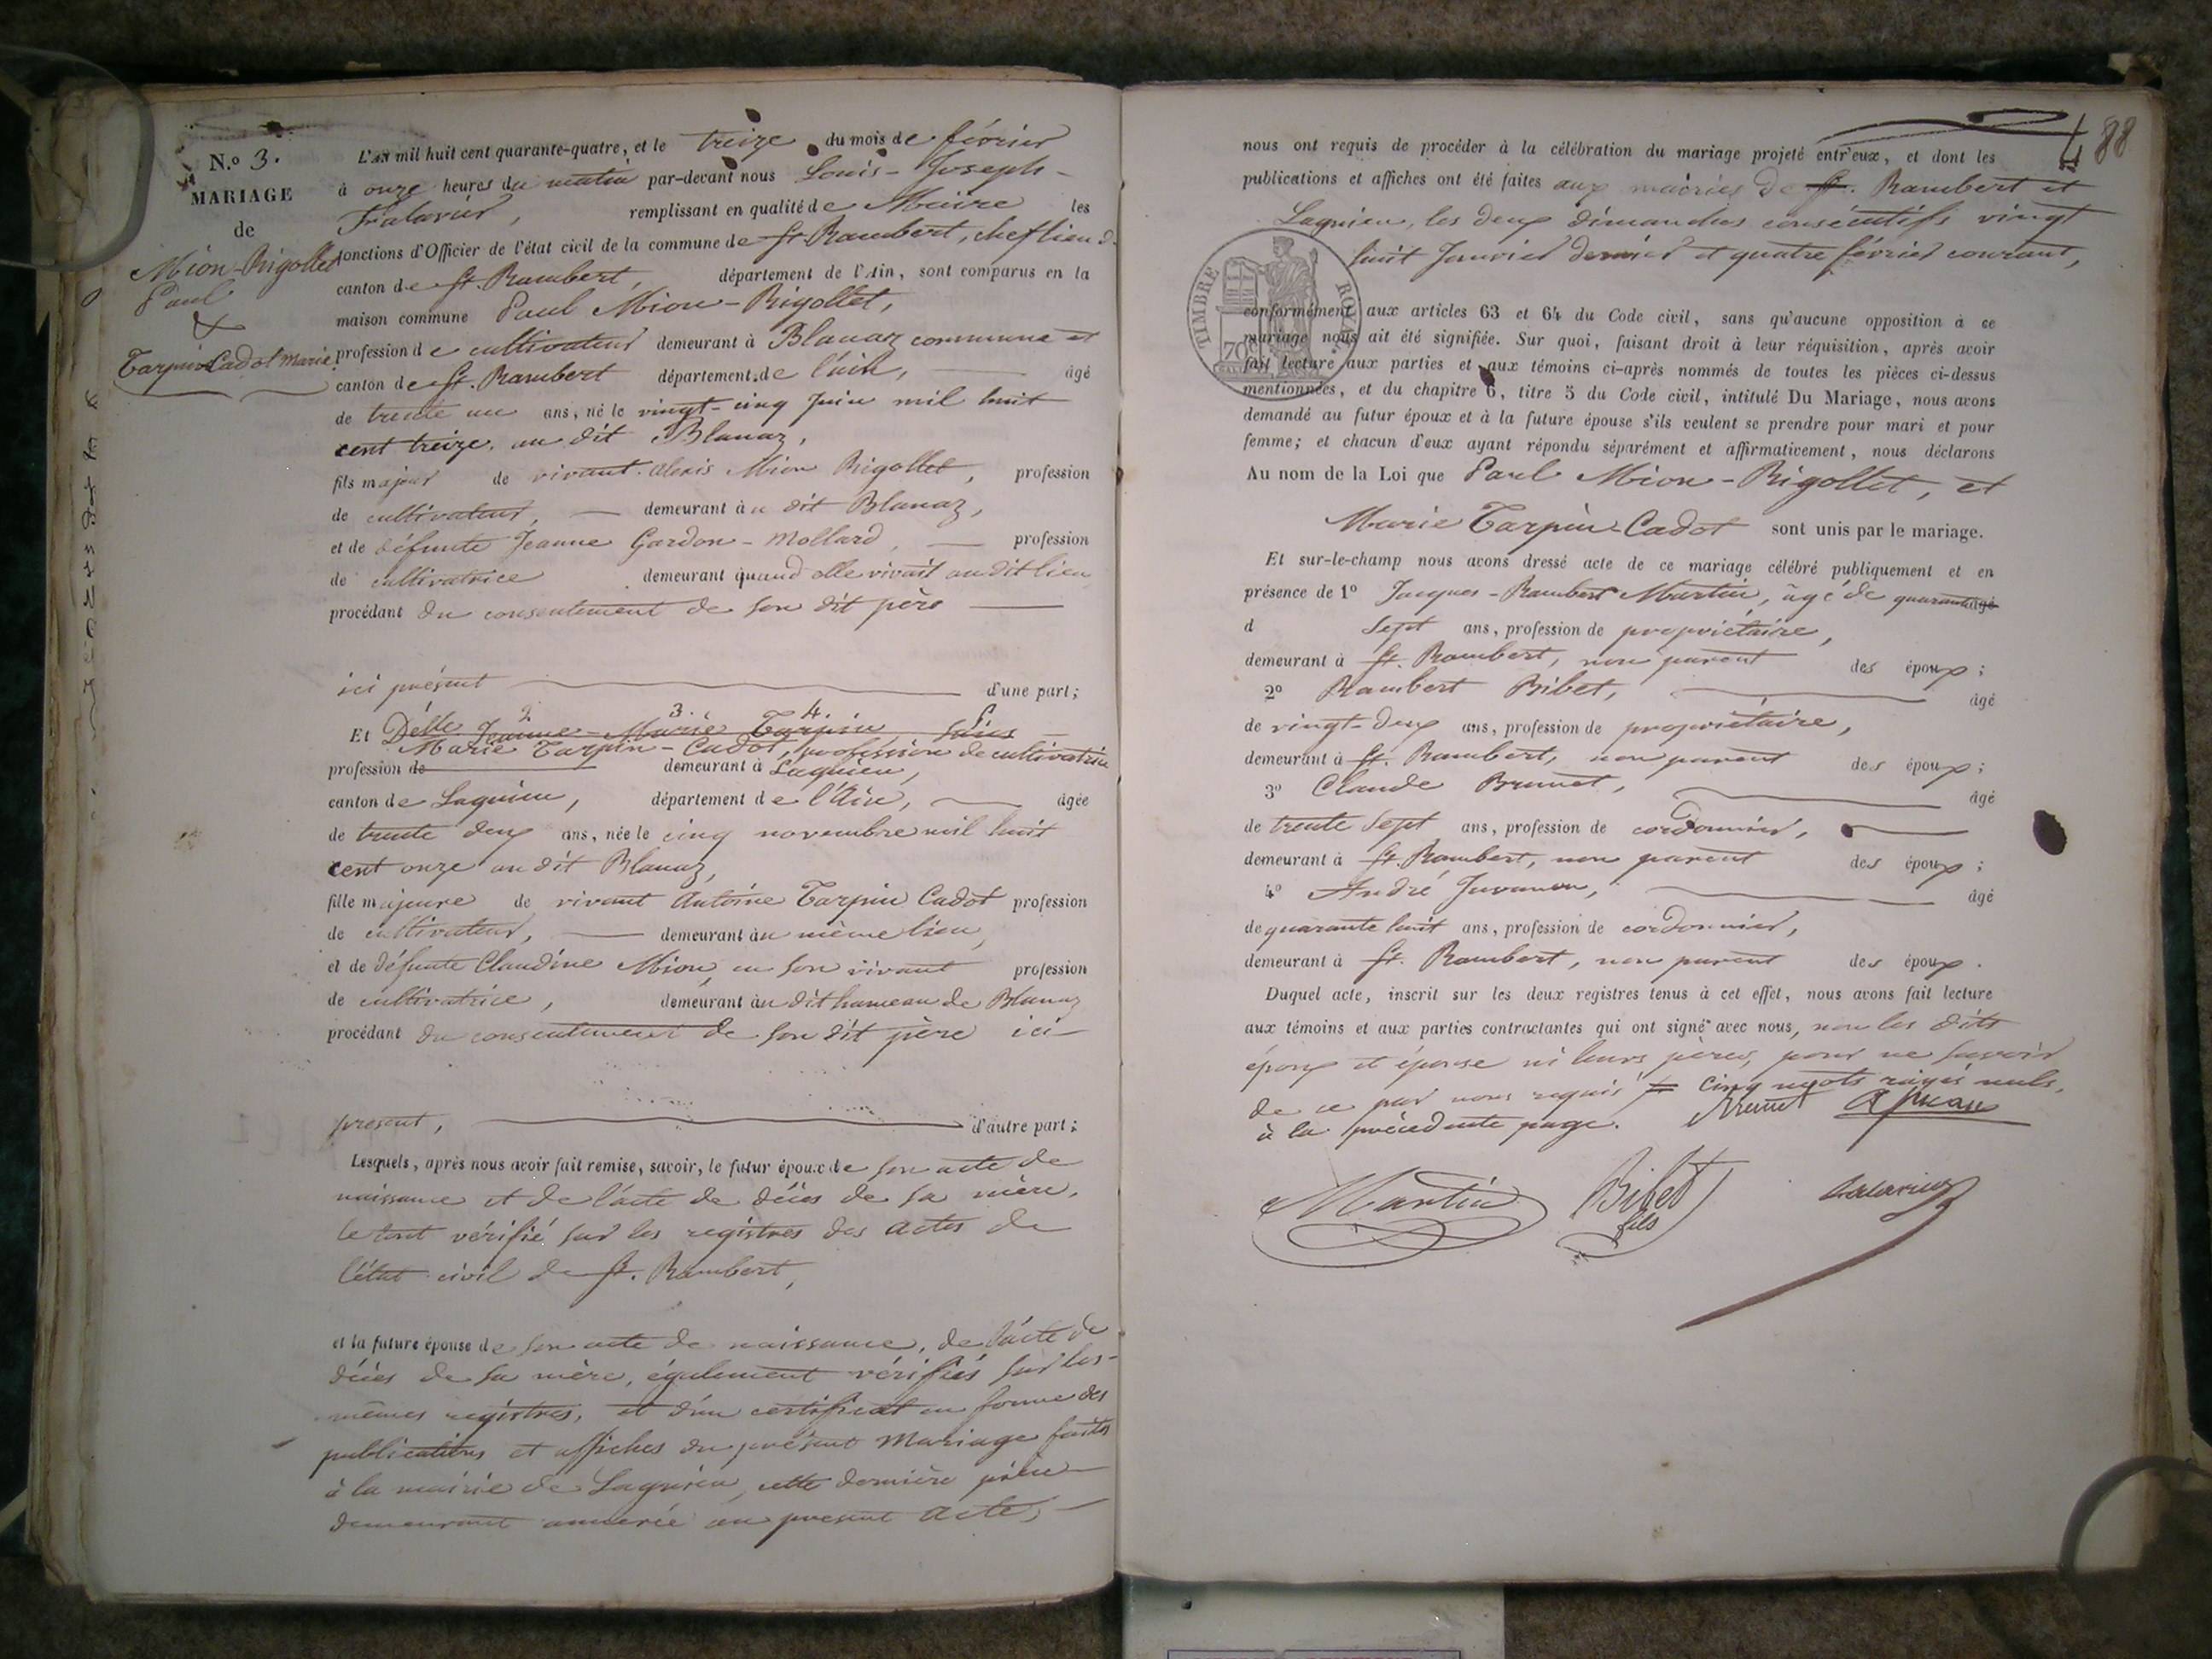 N.o 3.
MARIAGE
de
Mion-Rigollet
Paul
&
Tarpin Cadot Marie
L'an mil huit cent quarante-quatre, et le treize du mois de février
à onze heures du matin par-devant nous Louis-Joseph-
remplissant en qualité de Maire les
fonctions d'Officier de l'état civil de la commune de St Rambert, chef lieu d.
canton de St. Rambert, département de l'Ain, sont comparus en la
maison commune Paul Mion-Rigollet,
profession de cultivateur demeurant à Blanaz commune et
canton de St. Rambert département de l'ain, âgé
de trente un ans, né le vingt-cinq Juin mil huit
cent treize, au dit Blanaz,
fils majeur de vivant alexis Mion Rigollet, profession
de cultivateur, demeurant à u dit Blanaz,
et de défunte Jeanne Gardon-Mollard, profession
de cultivatrice demeurant quand elle vivait au dit lieu
procédant du consentement de son dit père
ici présent d'une part;
Et Delle Jeanne-Marie Tarpin, sans
2. 3. 4. 5
Marie Tarpin-Cadot, profession de cultivatrice
profession de demeurant à Lagnieu,
canton de Lagnieu, département de l'Ain, âgée
de trente deux ans, née le cinq novembre mil huit
cent onze au dit Blanaz,
fille majeure de vivant Antoine Tarpin Cadot profession
de cultivateur, demeurant àu même lieu,
et de défunte Claudine Mion, en son vivant profession
de cultivatrice, demeurant àu dit hameau de Blanaz
procédant du consentement de son dit père ici
présent, d'autre part;
Lesquels, après nous avoir fait remise, savoir, le futur époux de son acte de
naissance et de l'acte de décès de sa mère,
le tout vérifié sur les registres des actes de
l'état civil de St. Rambert,
et la future épouse de son acte de naissance, de l'acte de
décès de sa mère, également vérifiés sur les
mêmes registres, et d'un certificat en forme des
publications et affiches du présent Mariage faites
à la mairie de Lagnieu, cette dernière pièce
demeurant annexée au présent acte,
88
nous ont requis de procéder à la célébration du mariage projeté entr'eux, et dont les
publications et affiches ont été faites aux mairies de St. Rambert et
Lagnieu, les deux dimanches consécutifs vingt
huit Janvier dernier et quatre février courant,
TIMBRE ROYAL
70c
conformément aux articles 63 et 64 du Code civil, sans qu'aucune opposition à ce
mariage nous ait été signifiée. Sur quoi, faisant droit à leur réquisition, après avoir
fait lecture aux parties et aux témoins ci-après nommés de toutes les pièces ci-dessus
mentionnées, et du chapitre 6, titre 5 du Code civil, intitulé Du Mariage, nous avons
demandé au futur époux et à la future épouse s'ils veulent se prendre pour mari et pour
femme; et chacun d'eux ayant répondu séparément et affirmativement, nous déclarons
Au nom de la Loi que Paul Mion-Rigollet, et
Marie Tarpin-Cadot sont unis par le mariage.
Et sur-le-champ nous avons dressé acte de ce mariage célébré publiquement et en
présence de 1o Jacques-Rambert Martin, âgé de quarante âgé
d sept ans, profession de propriétaire,
demeurant à St. Rambert, non parent des époux;
2o Rambert Bibet, âgé
de vingt-deux ans, profession de propriétaire,
demeurant à St. Rambert, non parent des époux;
3o Claude Brunet, âgé
de trente sept ans, profession de cordonnier,
demeurant à St. Rambert, non parent des époux;
4o André Juvanon, âgé
de quarante huit ans, profession de cordonnier,
demeurant à St. Rambert, non parent des époux.
Duquel acte, inscrit sur les deux registres tenus à cet effet, nous avons fait lecture
aux témoins et aux parties contractantes qui ont signé avec nous, non les dits
époux et épouse ni leurs pères, pour ne savoir
de ce par nous requis cinq mots rayés nuls,
à la précédente page. Brunet
Martin Bibet
fils